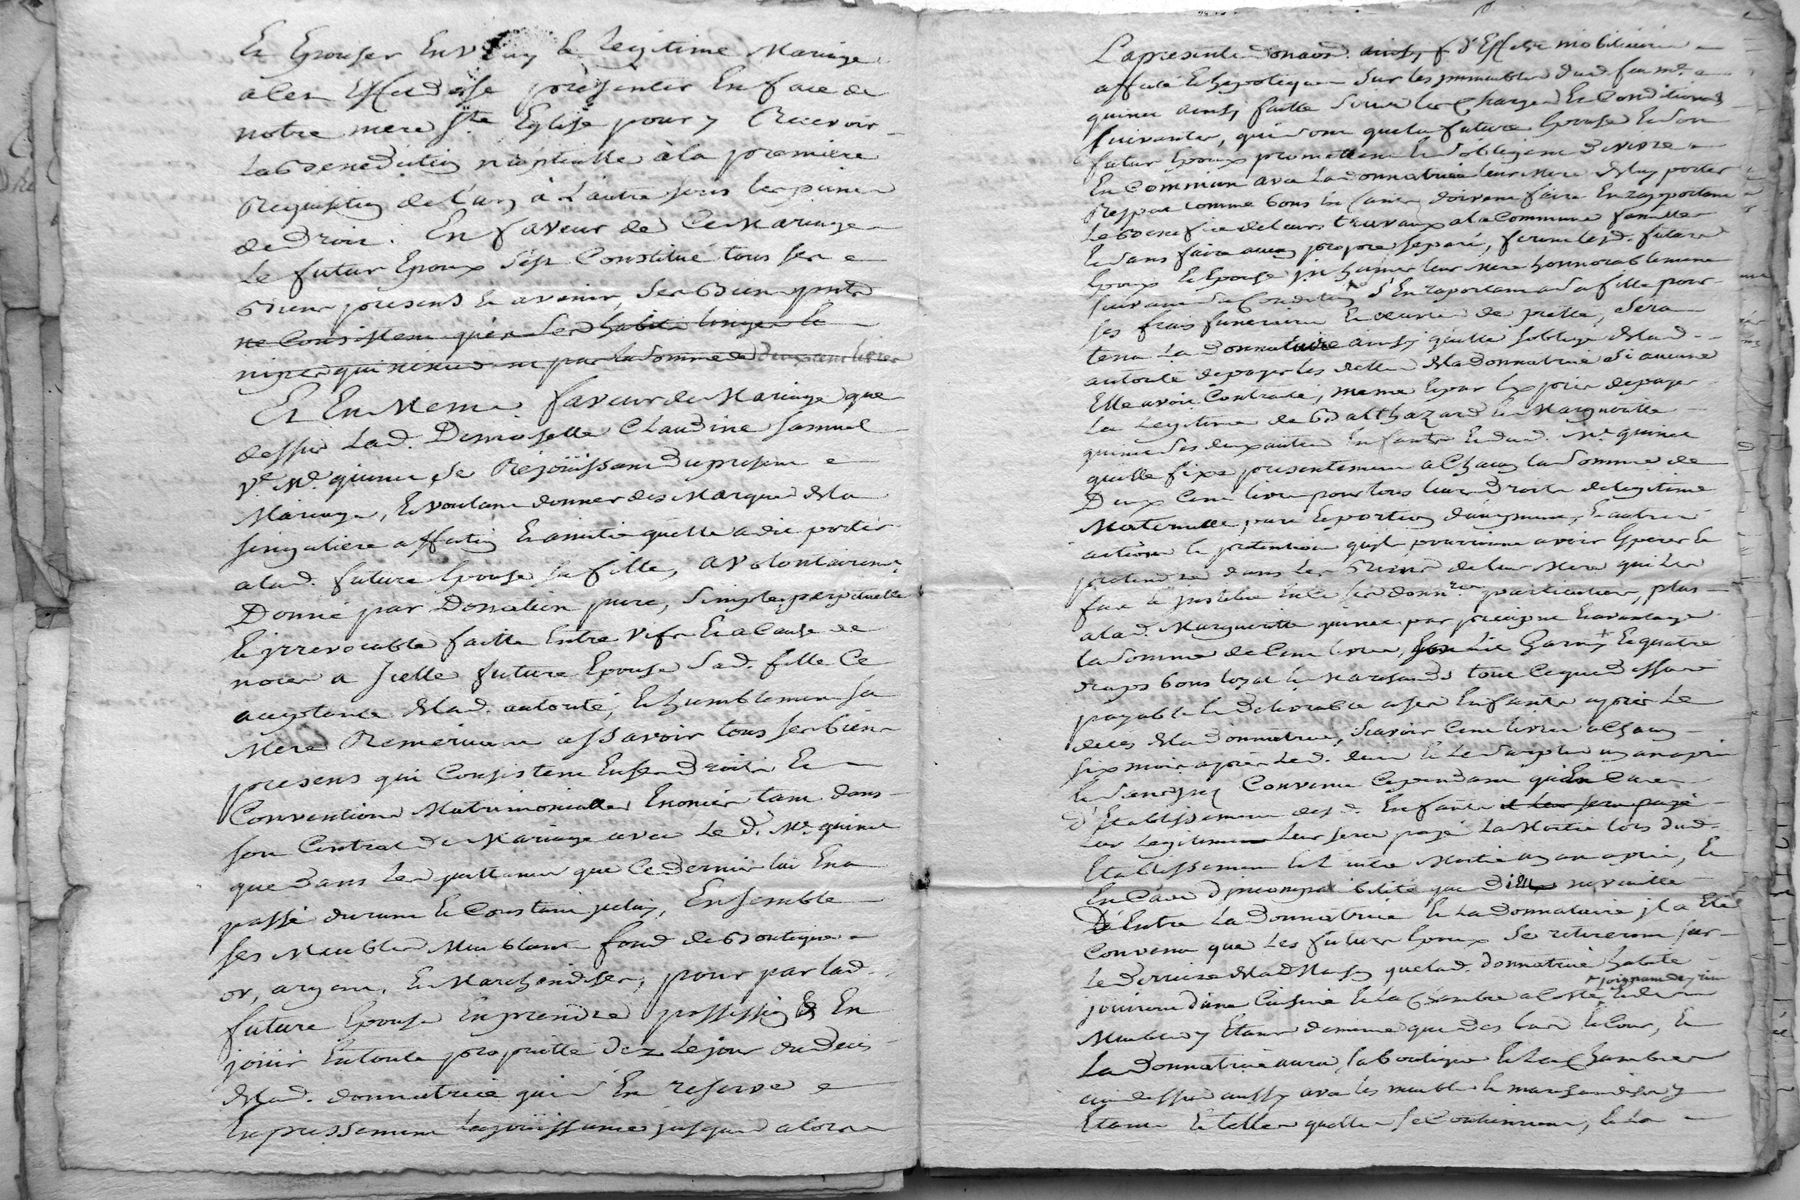 Et Epouser En vray & legitime Mariage
a cet Effet de se presenter En face de
notre mere Ste Eglise pour y Recevoir
La Benediction nuptialle à la premiere
Requisition de l'un à L'autre sous les peines
de droit. En faveur de Ce Mariage
Le futur Epoux s'est Constitué tous ses
Biens presens & avenir, ses Biens
ne Consistent qu'en ses habits linges &
nipes qui par la somme de deux cent livres
Et En Meme faveur de Mariage que
dessus Lad. Demoiselle Claudine Samuel
Ve. Mr. quinet, se Rejoüissant du present
Mariage, & voulant donner des Marques de la
singuliere affection & amitié quelle a dit porter
a lad. future Epouse sa fille, a volontairemt.
Donné par Donation pure, simple, perpetuelle
& irrevocable faitte Entre vifs & a Cause de
noces a Icelle future Epouse sad. fille Ce
aceptante de lad. autorité, & humblement sa
Mere Remerciant assavoir tous ses biens
presens qui Consistent En ses droits &
Conventions Matrimonialles Enoncés tant dans
son Contrat de Mariage avec Le d. Mr. quinet
que dans les que Ce dernier lui En a
passé durant & Constant Ensemble
ses Meubles Meublants fond de Boutique
or, argent, & Marchandises, pour par lad.
future Epouse En prendre possession & En
jouir En toute proprietté dez Le jour du deces
de lad. donnatrice qui s'En reserve
Expressement La joüissance jusques alors
La presente donaon. ainsy d'Effets mobiliaires
affecté & hypotequé sur les immeubles dud. feu Mr.
quinet ainsy faitte sous les Charges & Conditions
suivantes, qui sont que la future Epouse & son
futur Epoux promettent & s'obligent de vivre
En Commun avec La donnatrice Leur Mere & luy porter
Respect comme bons Enfants doivent faire En rapportant
Le Benefice de leurs travaux a la Commune famille
& sans faire aucun propre separé, feront lesd. futurs
Epoux & Epouse inhumer leur Mere honnorablement
suivant sa Condition s'En raportant a sa fille pour
ses frais funeraires & oeuvres de pietté, sera
tenu La donnataire ainsy quelle s'oblige de lad.
autorité de payer les dettes de la donnatrice si aucune
Elle avoit Contracté, meme & par Exprès de payer
La Legitime de Balthazard & Margueritte
quinet ses deux autres Enfants & dud. Mr. quinet
quelle fixe presentement a Chacun la somme de
Deux Cent livres pour tous leurs droits de legitime
Maternelle, part & portion d'augment, & autres
actions & pretentions qu'ils pourroient avoir Esperer &
pretendre dans les Biens de leur Mere qui les
fait & Institue En ce ses donnres. particuliers, plus
a lad. Margueritte quinet par preciput & avantage
la somme de Cent livres, Lit Garny & quatre
draps bons loyal & Marchands tout Ce que dessus
payable & delivrable a ses Enfants après Le
deces de la donnatrice, scavoir Cent livres a Chacun
six mois après Led. deces & Le surplus un an après
Convenu Cependant qu'En Cas
d'Etablissement desd. Enfants il leur sera payé
Leur Legitime Leur sera payé La Moitié lors dud.
Etablissement & L'autre Moitié un an après, &
En Cas d'Incompatibilité que dieu ne veuille
Entre La donnatrice & La donnataire il a Eté
Convenu que Les futurs Epoux se retireront sur
Le derriere de la Maison que lad. donnatrice habite
jouiront d'une Cuisine & La Chambre a Cotté joignant des
Meubles y Etant de meme que des bas & Cour, &
La donnatrice aura sa boutique & La Chambre
au dessus aussy avec les meubles & marchandises y
Etant & telles quelles se Contiennent, & La